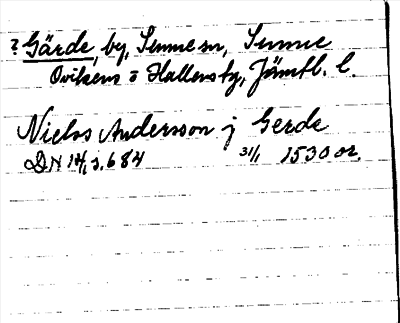 ? Gärde, by, Sunne sn, Sunne
Ovikens o Hallens tg, Jämtl. l.
Niclos Andersson j Gerde
DN 14, s. 684 31/1 1530 or.